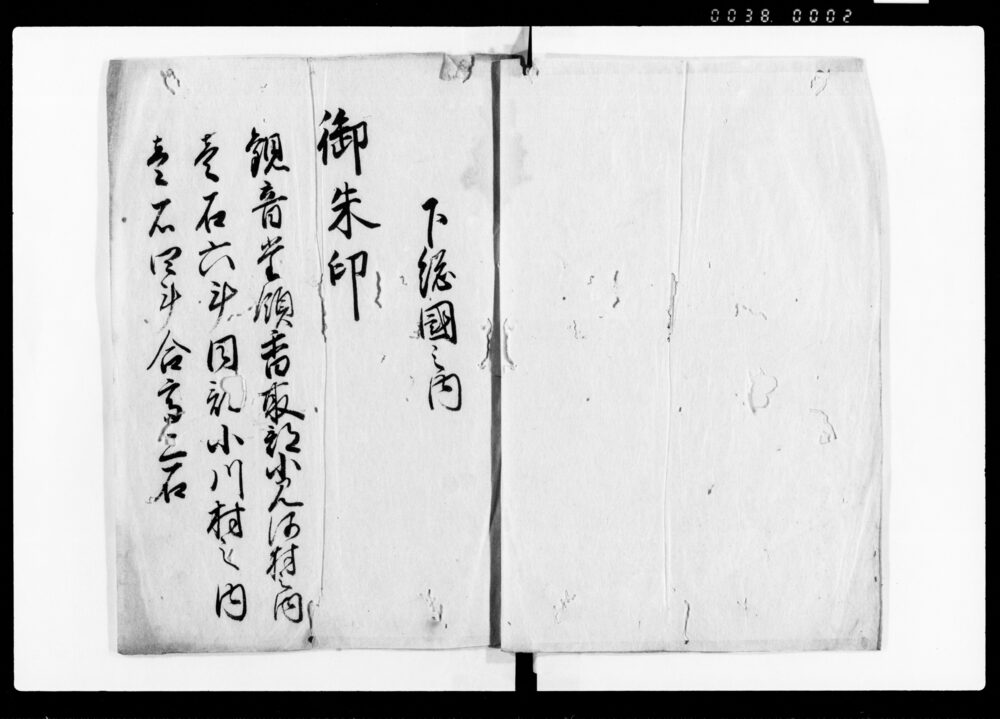 0038 0002
下総國之内
御朱印
観音堂領香取郡小見河村之内
壱石六斗同郡小川村之内
壱石四斗合高三石